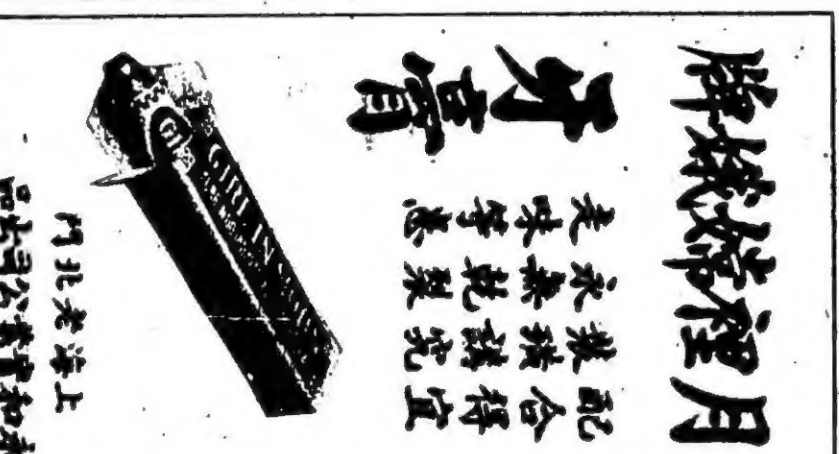 月裡嫦娥牌
牙膏
配合得宜
裝璜講究
永無乾裂
走味等患
GIRL IN
上海老北門
永和實業公司出品